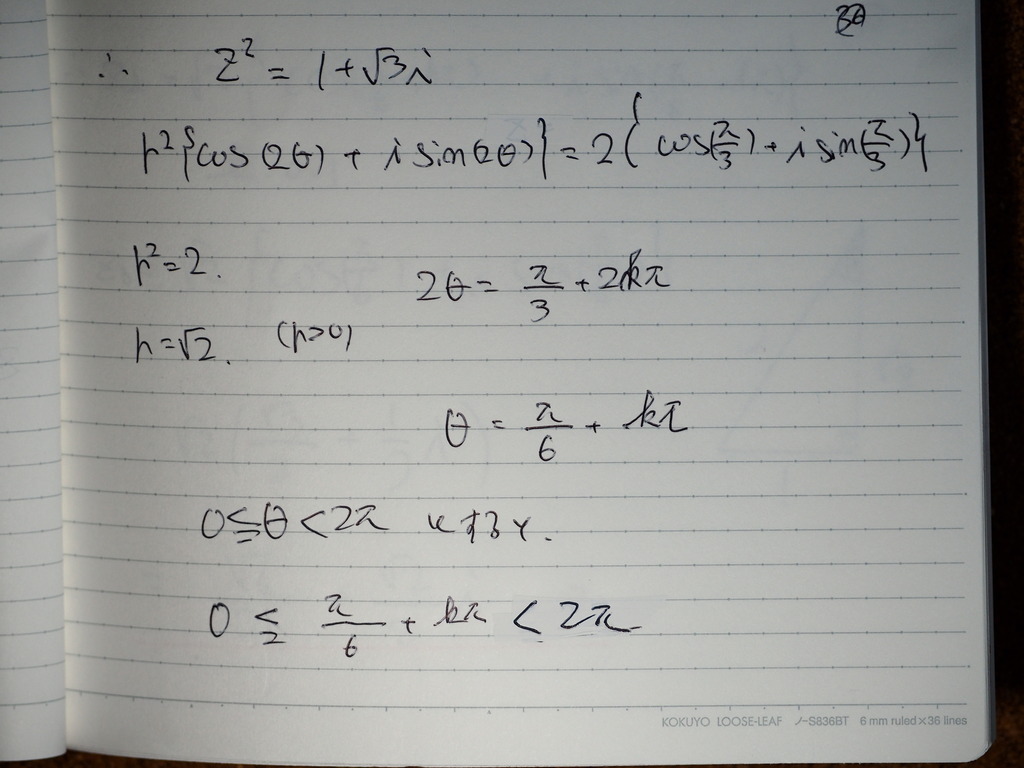 ∴ z² = 1 + √3 i
r²{cos(2θ) + i sin(2θ)} = 2{cos(π/3) + i sin(π/3)}
r² = 2.
2θ = π/3 + 2kπ
r = √2. (r>0)
θ = π/6 + kπ
0 ≦ θ < 2π とすると.
0 ≦ π/6 + kπ < 2π
KOKUYO LOOSE-LEAF ノ-S836BT 6 mm ruled×36 lines